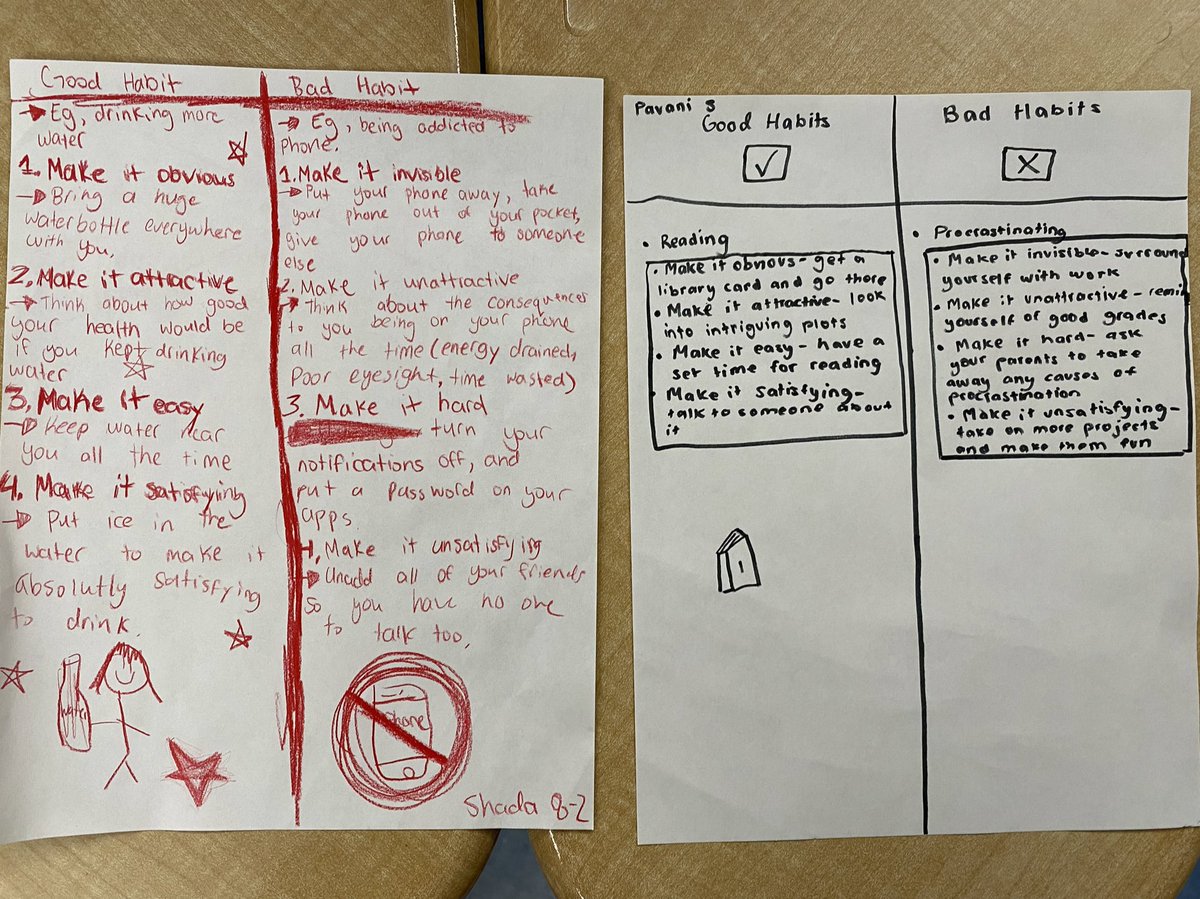 Good Habit
→ Eg, drinking more
water
1. Make it obvious
→ Bring a huge
waterbottle everywhere
with you,
2. Make it attractive
→ Think about how good
your health would be
if you kept drinking
water
3, Make it easy
→ Keep water near
you all the time
4. Make it satisfying
→ Put ice in the
water to make it
absolutly satisfying
to drink.
water
Bad Habit
→ Eg, being addicted to
phone.
1. Make it invisible
→ Put your phone away, take
your phone out of your pocket,
give your phone to someone
else
2. Make it unattractive
→ Think about the consequences
to you being on your phone
all the time (energy drained,
Poor eyesight, time wasted)
3. Make it hard
turn your
notifications off, and
put a password on your
apps.
4, Make it unsatisfying
→ Unadd all of your friends
so you have no one
to talk too,
Phone
Shada 8-2
Pavani S
Good Habits
• Reading
• Make it obvious - get a
library card and go there
• Make it attractive - look
into intriguing plots
• Make it easy - have a
set time for reading
• Make it satisfying -
talk to someone about
it
Bad Habits
• Procrastinating
• Make it invisible - surround
yourself with work
• Make it unattractive - remi
yourself of good grades
• Make it hard - ask
your parents to take
away any causes of
procrastination
• Make it unsatisfying -
take on more projects
and make them fun